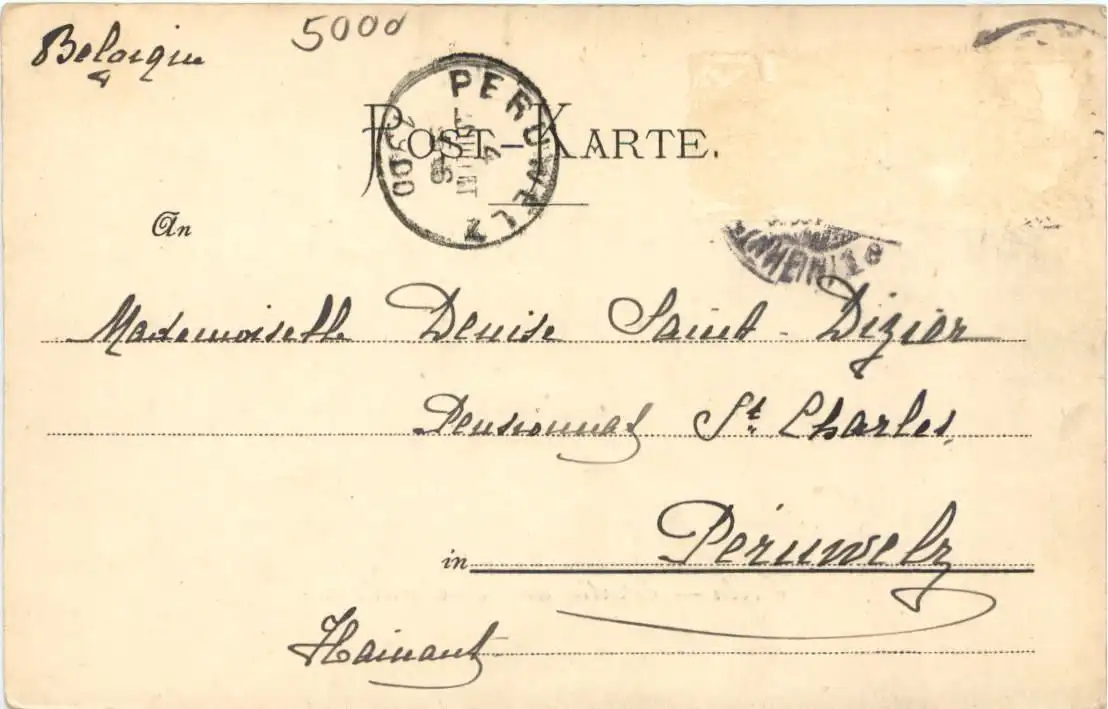 Belgique
5000
PERUWELZ
1900
POST-KARTE.
An
Mademoiselle Denise Saint-Dizier
Pensionnat St. Charles.
in Péruwelz
Hainaut